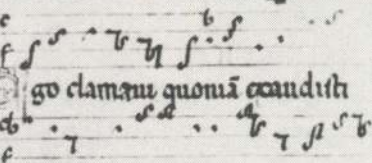 go clamaui quoniā exaudisti